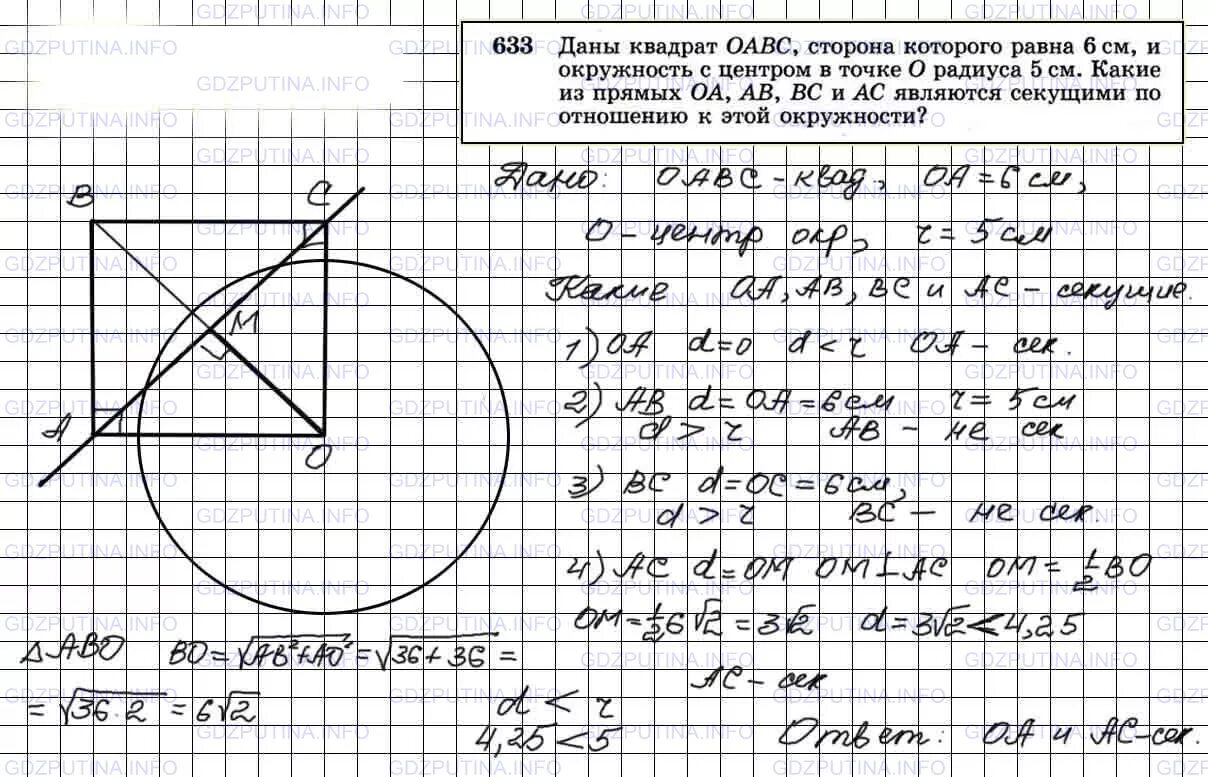 633 Даны квадрат OABC, сторона которого равна 6 см, и
окружность с центром в точке O радиуса 5 см. Какие
из прямых OA, AB, BC и AC являются секущими по
отношению к этой окружности?
Дано: OABC – квад, OA = 6 см,
O – центр окр, r = 5 см
Какие OA, AB, BC и AC – секущие.
B C
M
A O
1) OA d=0 d < r OA – сек.
2) AB d = OA = 6 см r = 5 см
d > r AB – не сек
3) BC d = OC = 6 см,
d > r BC – не сек.
4) AC d = OM OM ⊥ AC OM = 1/2 BO
OM = 1/2 6√2 = 3√2 d = 3√2 < 4,25
△ABO BO = √AB²+AO² = √36+36 =
= √36·2 = 6√2
AC – сек
d < r
4,25 < 5
Ответ: OA и AC – сек.
GDZPUTINA.INFO